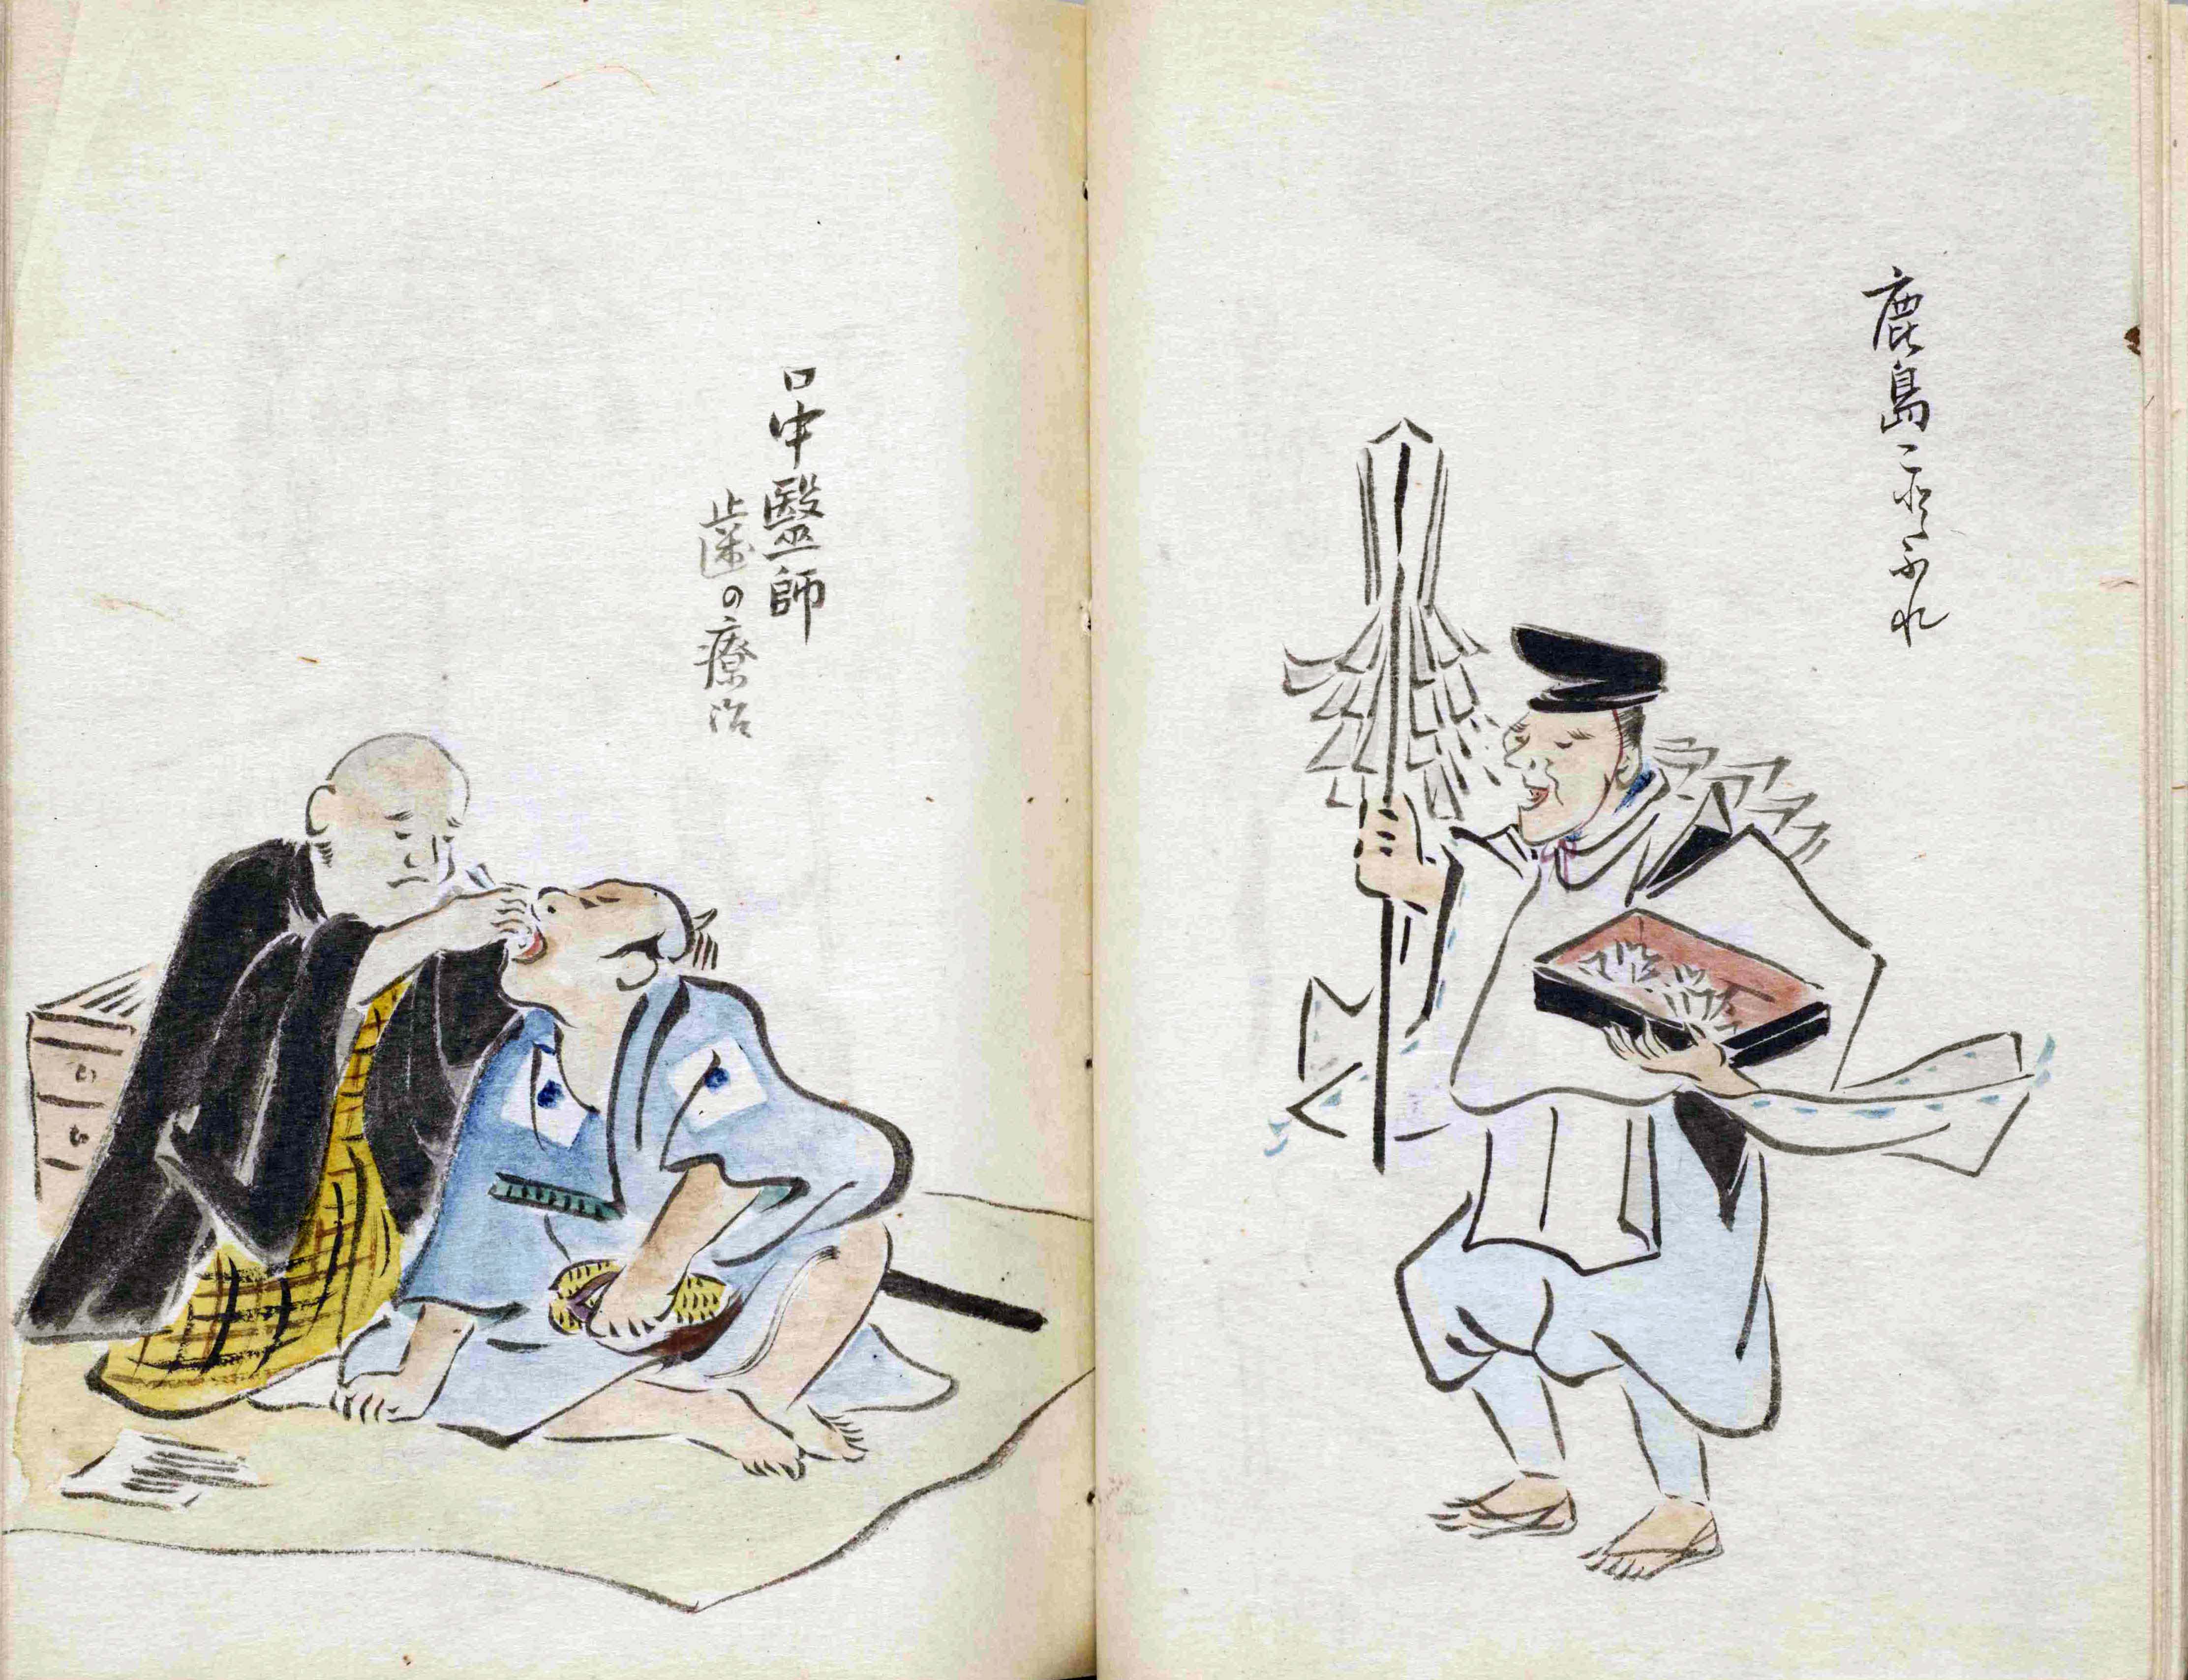 鹿島ことふれ
口中醫師
歯の療治